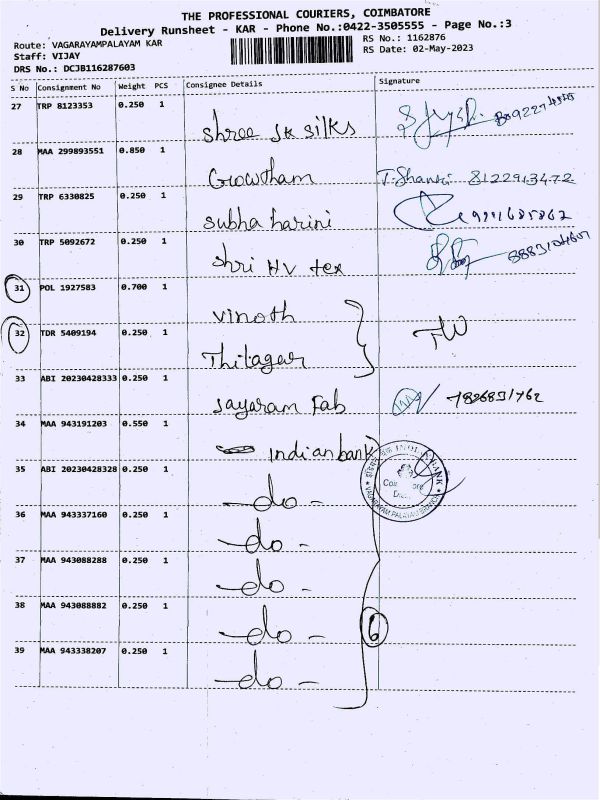 THE PROFESSIONAL COURIERS, COIMBATORE
Delivery Runsheet - KAR - Phone No.:0422-3505555 - Page No.:3
Route: VAGARAYAMPALAYAM KAR
RS No.: 1162876
Staff: VIJAY
RS Date: 02-May-2023
DRS No.: DCJB116287603
S No Consignment No Weight PCS Consignee Details Signature
27 TRP 8123353 0.250 1
Shree SK Silks
28 MAA 299893551 0.850 1
Gowtham T. Shanthi 8122913472
29 TRP 6330825 0.250 1
Subha harini
30 TRP 5092672 0.250 1
Shri HV tex
31 POL 1927583 0.700 1
Vinoth
32 TDR 5409194 0.250 1
Thilagar
33 ABI 20230428333 0.250 1
Sayaram Fab
34 MAA 943191203 0.550 1
indian bank
35 ABI 20230428328 0.250 1
- do -
36 MAA 943337160 0.250 1
- do -
37 MAA 943088288 0.250 1
- do -
38 MAA 943088882 0.250 1
- do - 6
39 MAA 943338207 0.250 1
- do -